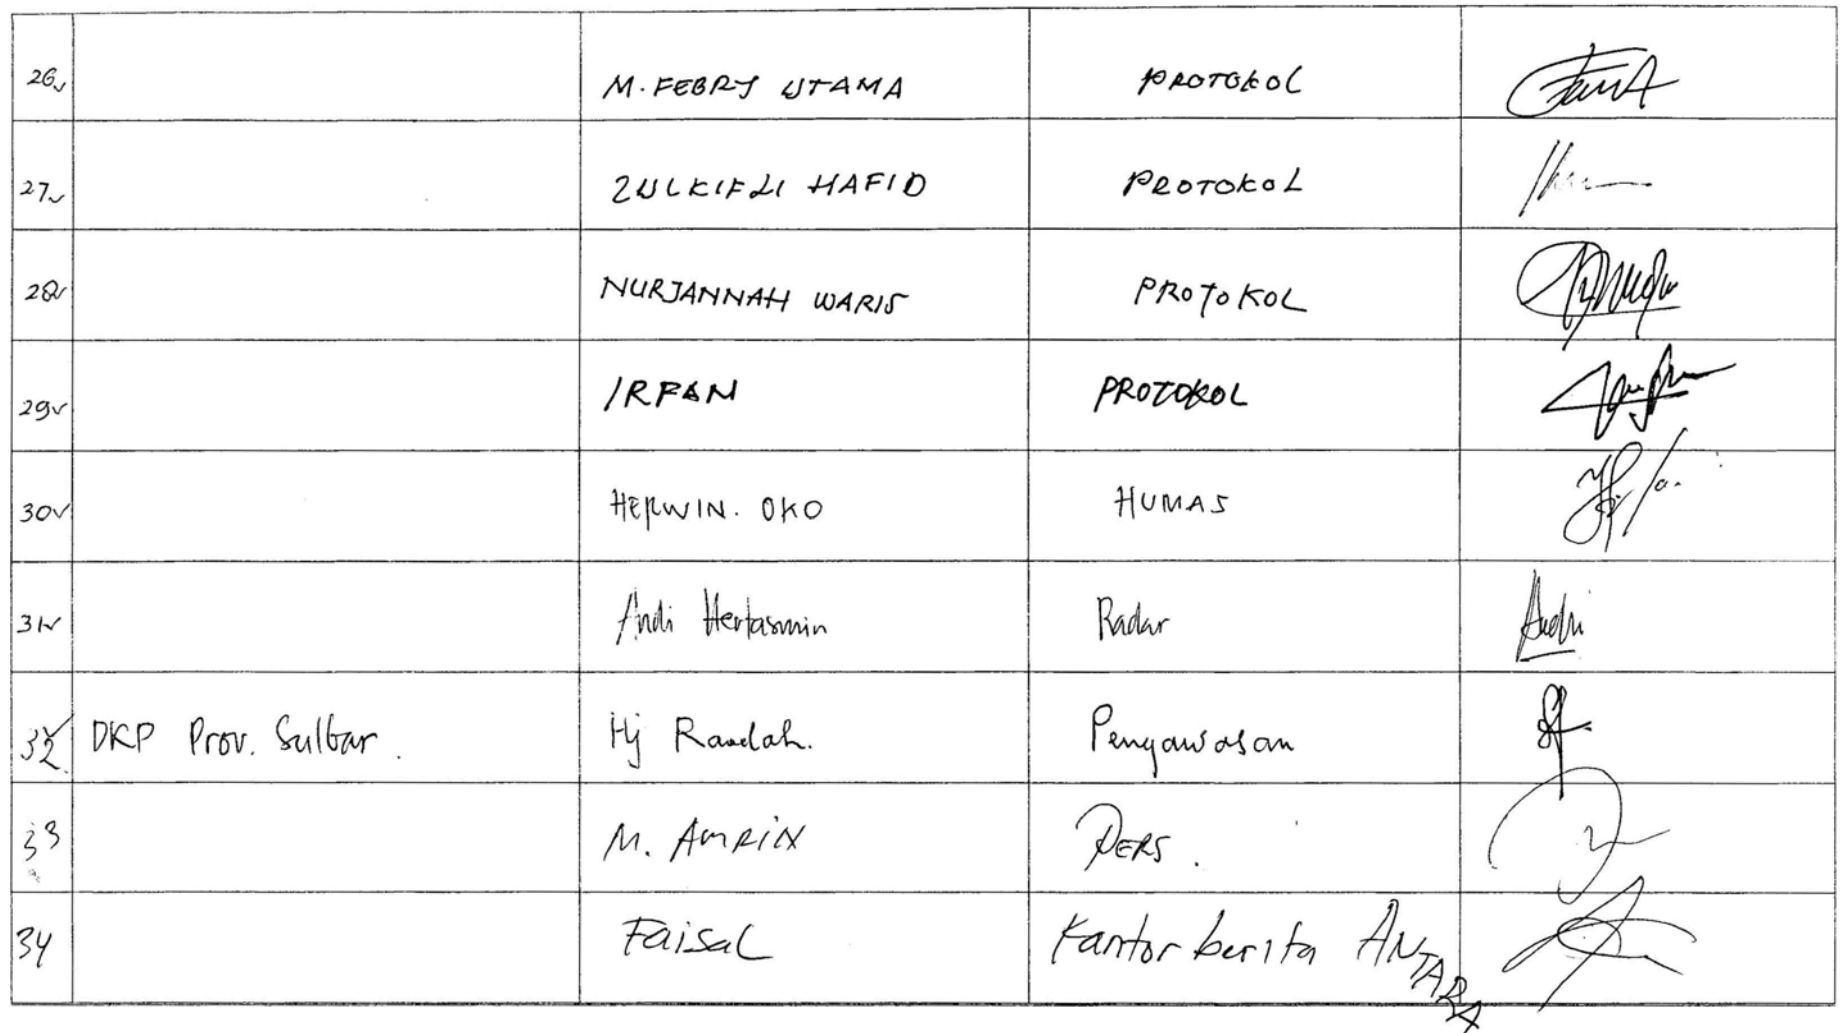 26 M. FEBRY UTAMA PROTOKOL
27 ZULKIFLI HAFID PROTOKOL
28 NURJANNAH WARIS PROTOKOL
29 IRFAN PROTOKOL
30 HERWIN. OKO HUMAS
31 Andi Hertasmin Radar Andi
32 DKP Prov. Sulbar. Hj Raudah. Pengawasan
33 M. AMRIN PERS.
34 Faisal Kantor berita ANTARA